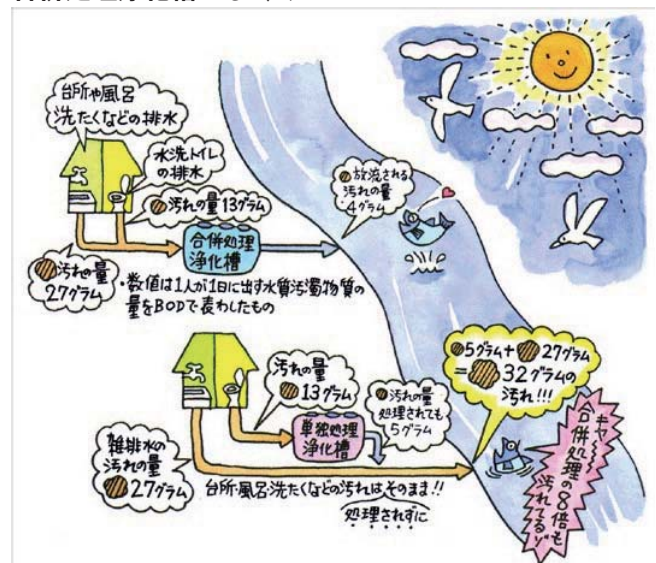 台所や風呂
洗たくなどの排水
水洗トイレ
の排水
汚れの量13グラム
汚れの量
27グラム
合併処理
浄化槽
放流される
汚れの量
4グラム
・数値は1人が1日に出す水質汚濁物質の
量をBODで表わしたもの
汚れの量
13グラム
単独処理
浄化槽
汚れの量
処理されても
5グラム
雑排水の
汚れの量
27グラム
台所・風呂・洗たくなどの汚れはそのまま!!
処理されずに
5グラム+27グラム
=32グラムの
汚れ!!!
キャ〜〜
合併処理の8倍も
汚れてるゾ